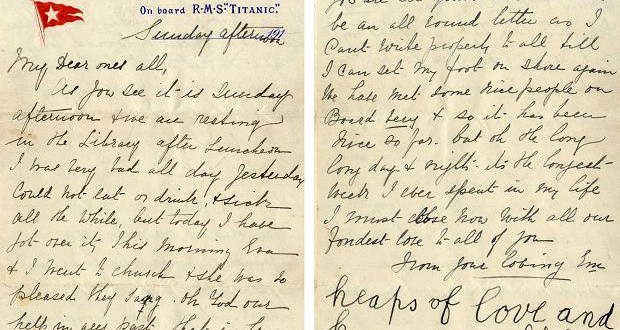 On board R.M.S. "TITANIC."
Sunday afternoon 191
My Dear ones all,
As you see it is Sunday
afternoon & we are resting
in the Library after Luncheon
I was very bad all day yesterday
Could not eat or drink, & sick
all the while, but today I have
got over it, this morning Eva
& I went to church & she was so
pleased they sang Oh God our
help in ages past
be an all round letter as I
Cant write properly to all till
I can set my foot on shore again
We have met some nice people on
Board Lucy & so it has been
nice so far. but oh the long
long days & nights. its the longest
week I ever spent in my life
I must close now with all our
fondest love to all of you
from your loving Em
heaps of love and